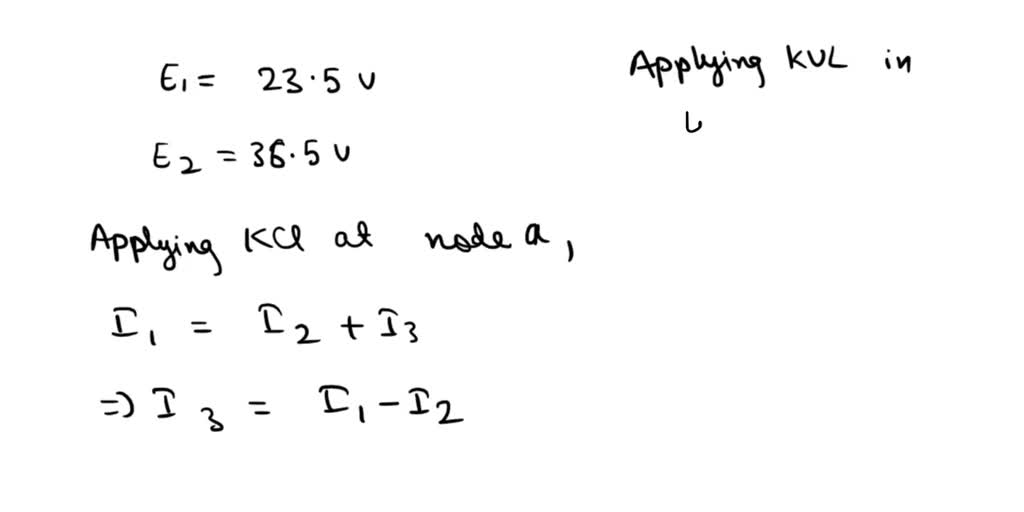 E1 = 23.5 v
E2 = 36.5 v
Applying KCl at node a,
I1 = I2 + I3
=) I3 = I1 - I2
Applying KVL in
L